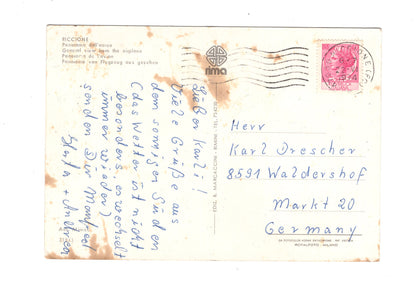 RICCIONE
Panorama dall'aereo
General view from the airplane
Panorama de l'avion
Panorama vom Flugzeug aus gesehen
rima
Lieber Karli!
Viele Grüße aus
dem sonnigen Süden
(das Wetter ist nicht
besonders, es wechselt
immer wieder)
senden Dir Manfred
EDIZ. B. MARCACCINI - RIMINI
Herr
Karl Drescher
8591 Waldershof
Markt 20
Germany